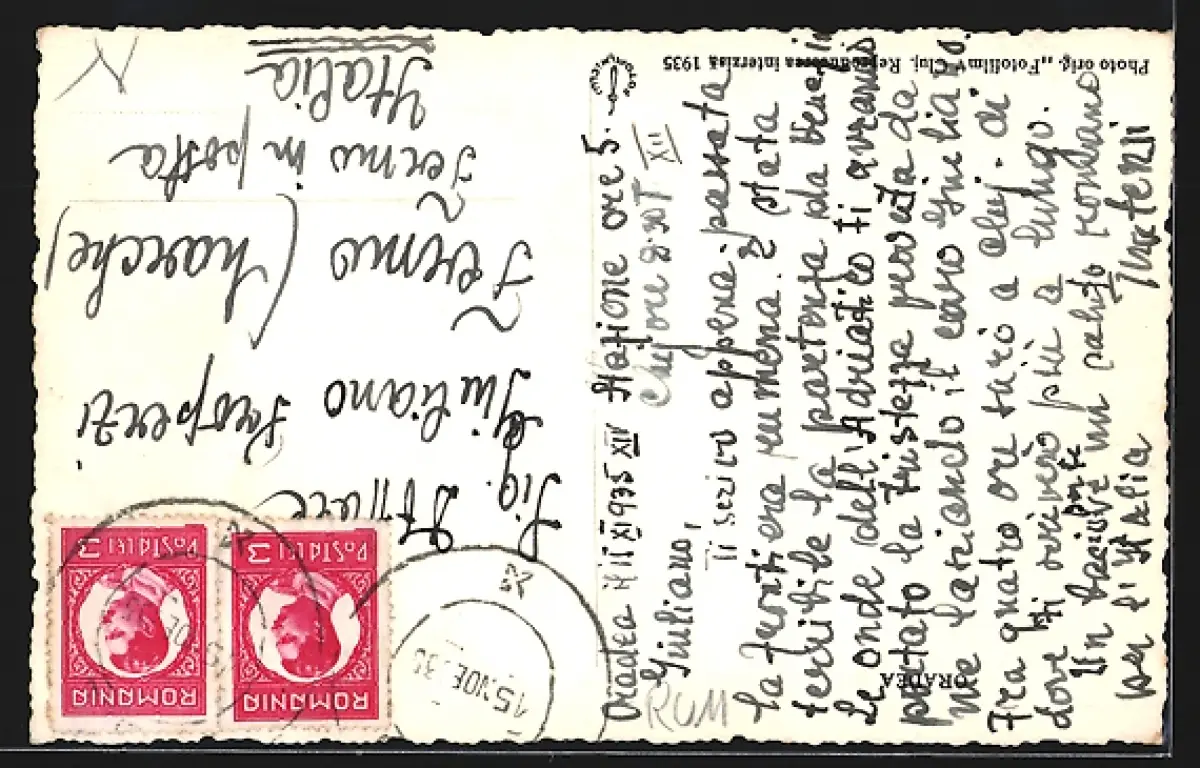 Photo orig. „Fotofilm" Cluj. Reproducerea interzisă 1935
ORADEA
Oradea XI 1935 XIV Stazione ore 5.
ore 8.30 XII
Giuliano,
Ti scrivo appena passata
la frontiera rumena. È stata
terribile la partenza da
Le onde dell'Adriatico ti avranno
portato la tristezza provata da
me lasciando il caro Giuliano.
Fra quatro ore sarò a Cluj. di
dove ti scriverò più a lungo.
Un bacio e un saluto romano
per l'Italia
RUM
Sig.
Giuliano Properzi
Fermo (Marche)
Fermo in posta
Italia
ROMANIA
POSTA LEI 3
ROMANIA
POSTA LEI 3
15 NOE 935